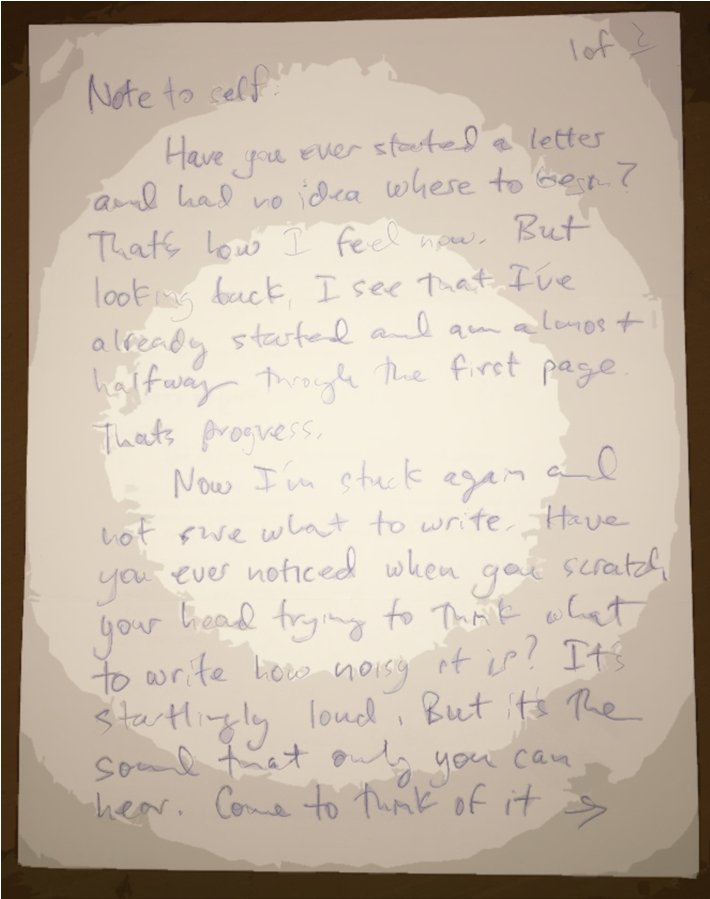 1 of 2
Note to self:
Have you ever started a letter
and had no idea where to begin?
That's how I feel now. But
looking back, I see that I've
already started and am almost
halfway through the first page.
Thats progress.
Now I'm stuck again and
not sure what to write. Have
you ever noticed when you scratch
your head trying to think what
to write how noisy it is? It's
startlingly loud. But it's the
sound that only you can
hear. Come to think of it →